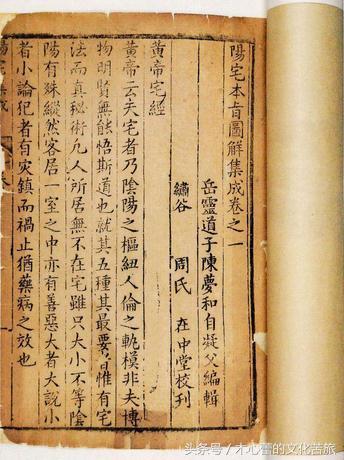 陽宅本旨圖解集成卷之一
岳靈道子陳夢和自凝父編輯
繡谷 周氏 在中堂校刊
黃帝宅經
黃帝云夫宅者乃陰陽之樞紐人倫之軌模非夫博
物明賢無能悟斯道也就其五種其最要者惟有宅
法而真秘術凡人所居無不在宅雖只大小不等陰
陽有殊縱然客居一室之中亦有善惡大者大說小
者小論犯者有灾鎮而禍止猶藥病之效也
陽宅集成
头条号/木心蕾的文化苦旅